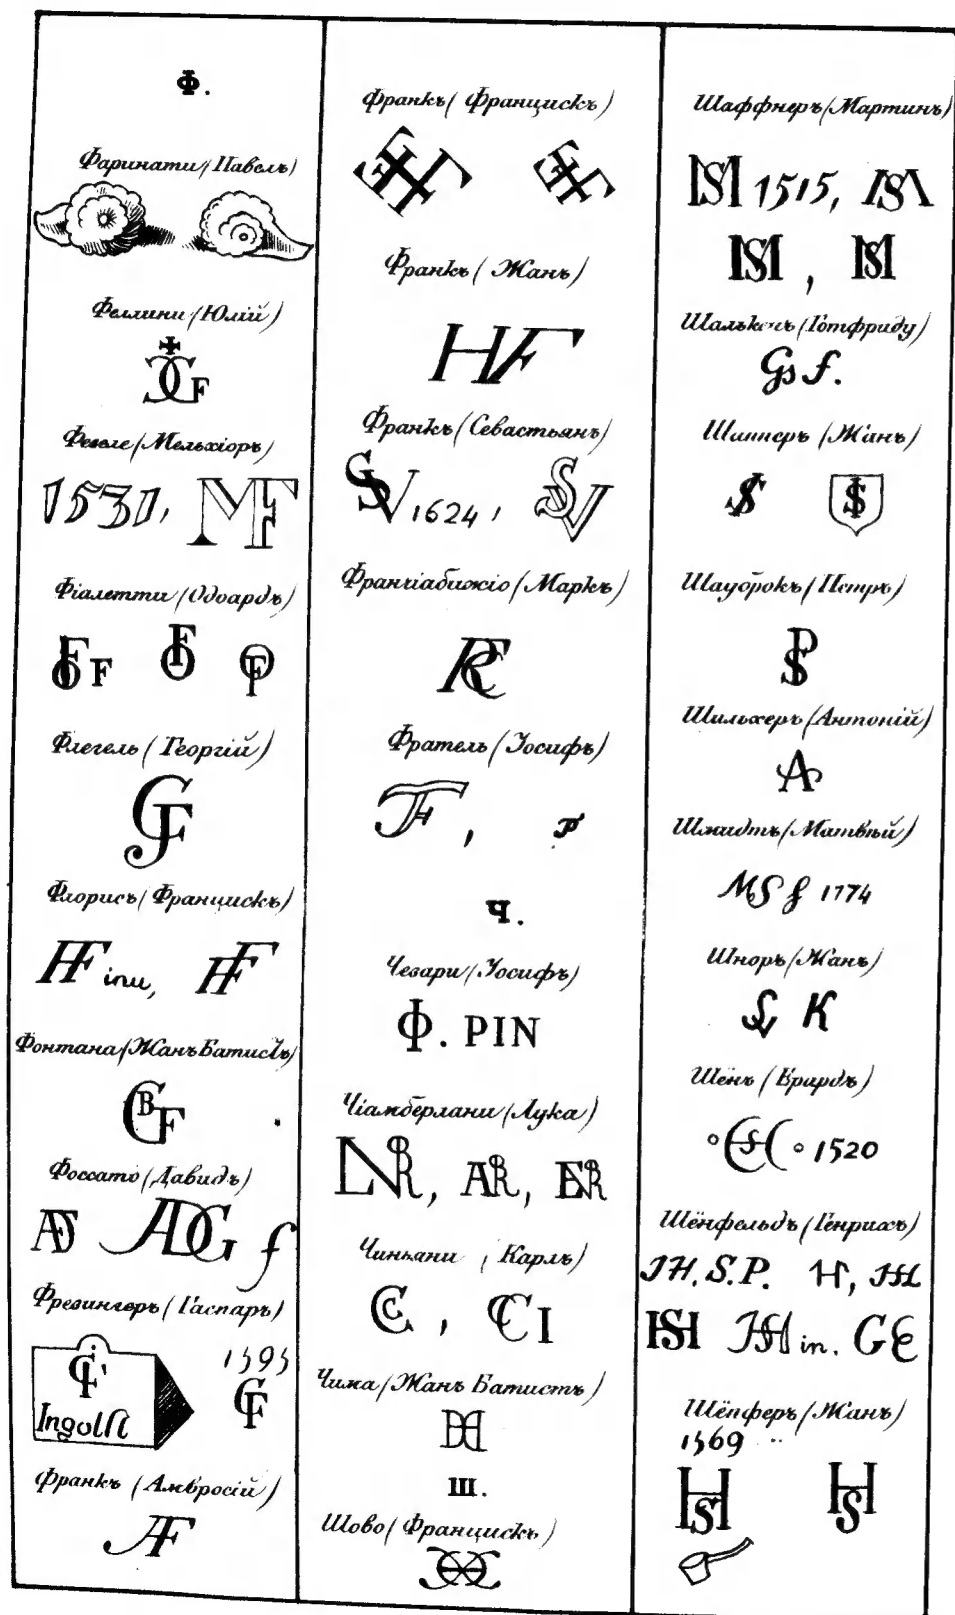 Ф.
Фаринати (Павелъ)
Феллини (Юлій)
F
Фезеле (Мельхіоръ)
1531, MF
Фіалетти (Одоардъ)
F
Флегель (Георгій)
GF
Флорисъ (Францискъ)
HF inu, HF
Фонтана (Жанъ Батистъ)
Фоссато (Давидъ)
f
Фрезингеръ (Гаспаръ)
1595
Франкъ (Амвросій)
AF
Франкъ (Францискъ)
Франкъ (Жанъ)
HF
Франкъ (Севастьянъ)
1624,
Франчіабижіо (Маркъ)
Фратель (Іосифъ)
Ч.
Чезари (Іосифъ)
Ф. PIN
Чіамберлани (Лука)
Чиньяни (Карлъ)
Чима (Жанъ Батистъ)
Ш.
Шово (Францискъ)
Шаффнеръ (Мартинъ)
1515,
Шалькенъ (Готфриду)
Gs f.
Шипперъ (Жанъ)
Шауброкъ (Петръ)
Шильхеръ (Антоній)
Шмидтъ (Матвѣй)
MS f 1774
Шноръ (Жанъ)
K
Шёнъ (Ерардъ)
1520
Шёнфельдъ (Генрихъ)
JH. S. P.
in.
Шёпферъ (Жанъ)
1569